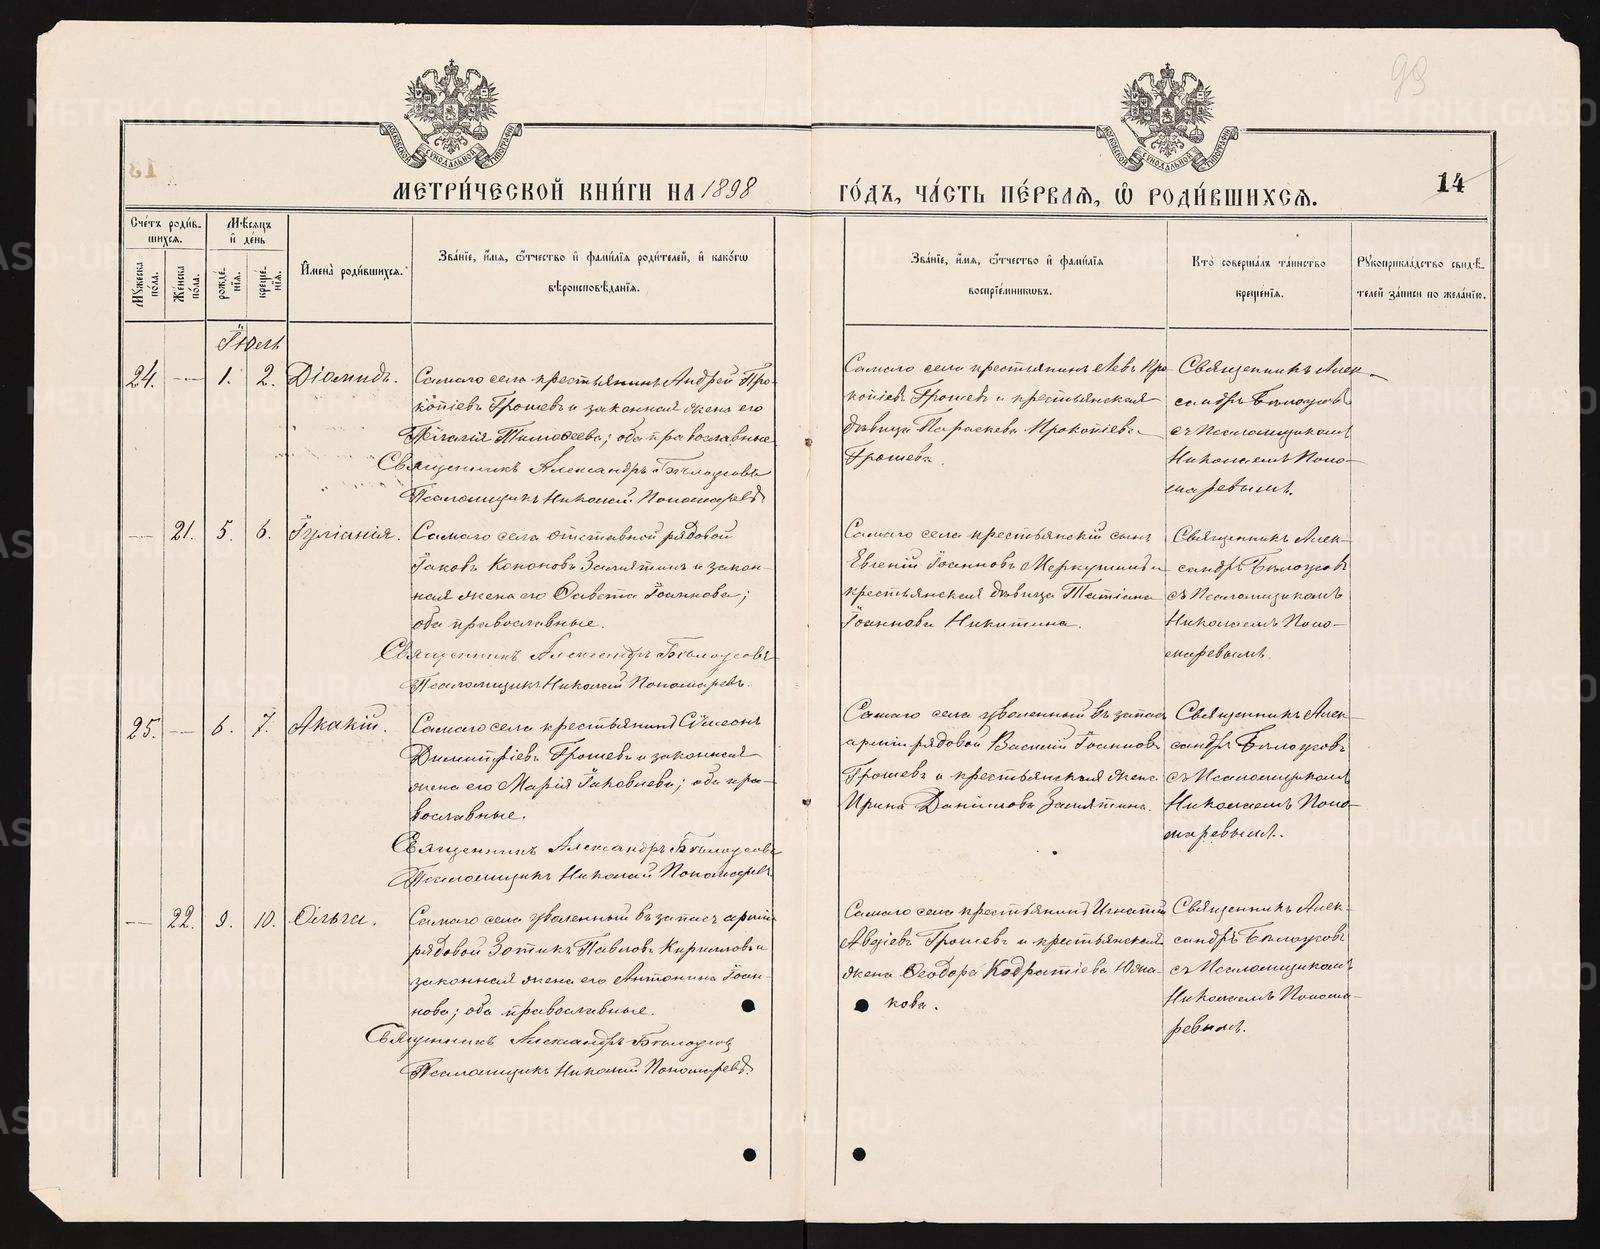 93
14
МЕТРИ́ЧЕСКОЙ КНИ́ГИ НА 1898 ГО́ДЪ, ЧА́СТЬ ПЕ́РВАЯ, Ѡ РОДИ́ВШИХСЯ.
Сче́тъ роди́в-
шихся.
Мѣ́сяцъ
и де́нь
Мꙋ́жеска по́ла.
Же́нска по́ла.
рожде́нїя.
креще́нїя.
И́мена роди́вшихся.
Зва́нїе, и́мя, ѻ́тчество и фами́лїя роди́телей, и како́гѡ
вѣроисповѣ́данїя.
Зва́нїе, и́мя, ѻ́тчество и фами́лїя
воспрїе́мникѡвъ.
Кто̀ соверша́лъ та́инство
креще́нїя.
Рꙋкоприкла́дство свидѣ́-
телей за́писи по жела́нїю.
Іюль
24. — 1. 2. Діомидъ.
Самаго села крестьянинъ Андрей Про-
копіевъ Грошевъ и законная жена его
Тимоѳеева; оба православные
Священникъ Александръ Бѣлоусовъ
Псаломщикъ Николай Пономаревъ
Самаго села крестьянинъ Левъ Про-
копіевъ Грошевъ и крестьянская
дѣвица Параскева Прокопіева
Грошева.
Священникъ Алек-
сандръ Бѣлоусовъ
съ Псаломщикомъ
Николаемъ Поно-
маревымъ.
— 21. 5. 6. Іуліанія.
Самаго села отставной рядовой
Іаковъ Кононовъ Замятинъ и закон-
ная жена его Савета Іоаннова;
оба православные.
Священникъ Александръ Бѣлоусовъ
Псаломщикъ Николай Пономаревъ.
Самаго села крестьянскій сынъ
Евгеній Іоанновъ Меркушинъ и
крестьянская дѣвица Татіана
Іоаннова Никитина.
Священникъ Алек-
сандръ Бѣлоусовъ
съ Псаломщикомъ
Николаемъ Поно-
маревымъ.
25. — 6. 7. Акакій.
Самаго села крестьянинъ Сѵмеонъ
Димитріевъ Грошевъ и законная
жена его Марія Іаковлева; оба пра-
вославные.
Священникъ Александръ Бѣлоусовъ
Псаломщикъ Николай Пономаревъ
Самаго села уволенный въ запасъ
арміи рядовой Василій Іоанновъ
Грошевъ и крестьянская жена
Ирина Даніилова Замятина.
Священникъ Алек-
сандръ Бѣлоусовъ
съ Псаломщикомъ
Николаемъ Поно-
маревымъ.
— 22. 9. 10. Ольга.
Самаго села уволенный въ запасъ арміи
рядовой Зотикъ Павловъ Кирилловъ и
законная жена его Антонина Іоан-
нова; оба православные.
Священникъ Александръ Бѣлоусовъ
Псаломщикъ Николай Пономаревъ.
Самаго села крестьянинъ Игнатій
Авдіевъ Грошевъ и крестьянская
жена Ѳеодора Кодратіева Южа-
кова.
Священникъ Алек-
сандръ Бѣлоусовъ
съ Псаломщикомъ
Николаемъ Понома-
ревымъ.
METRIKI.GASO-URAL.RU